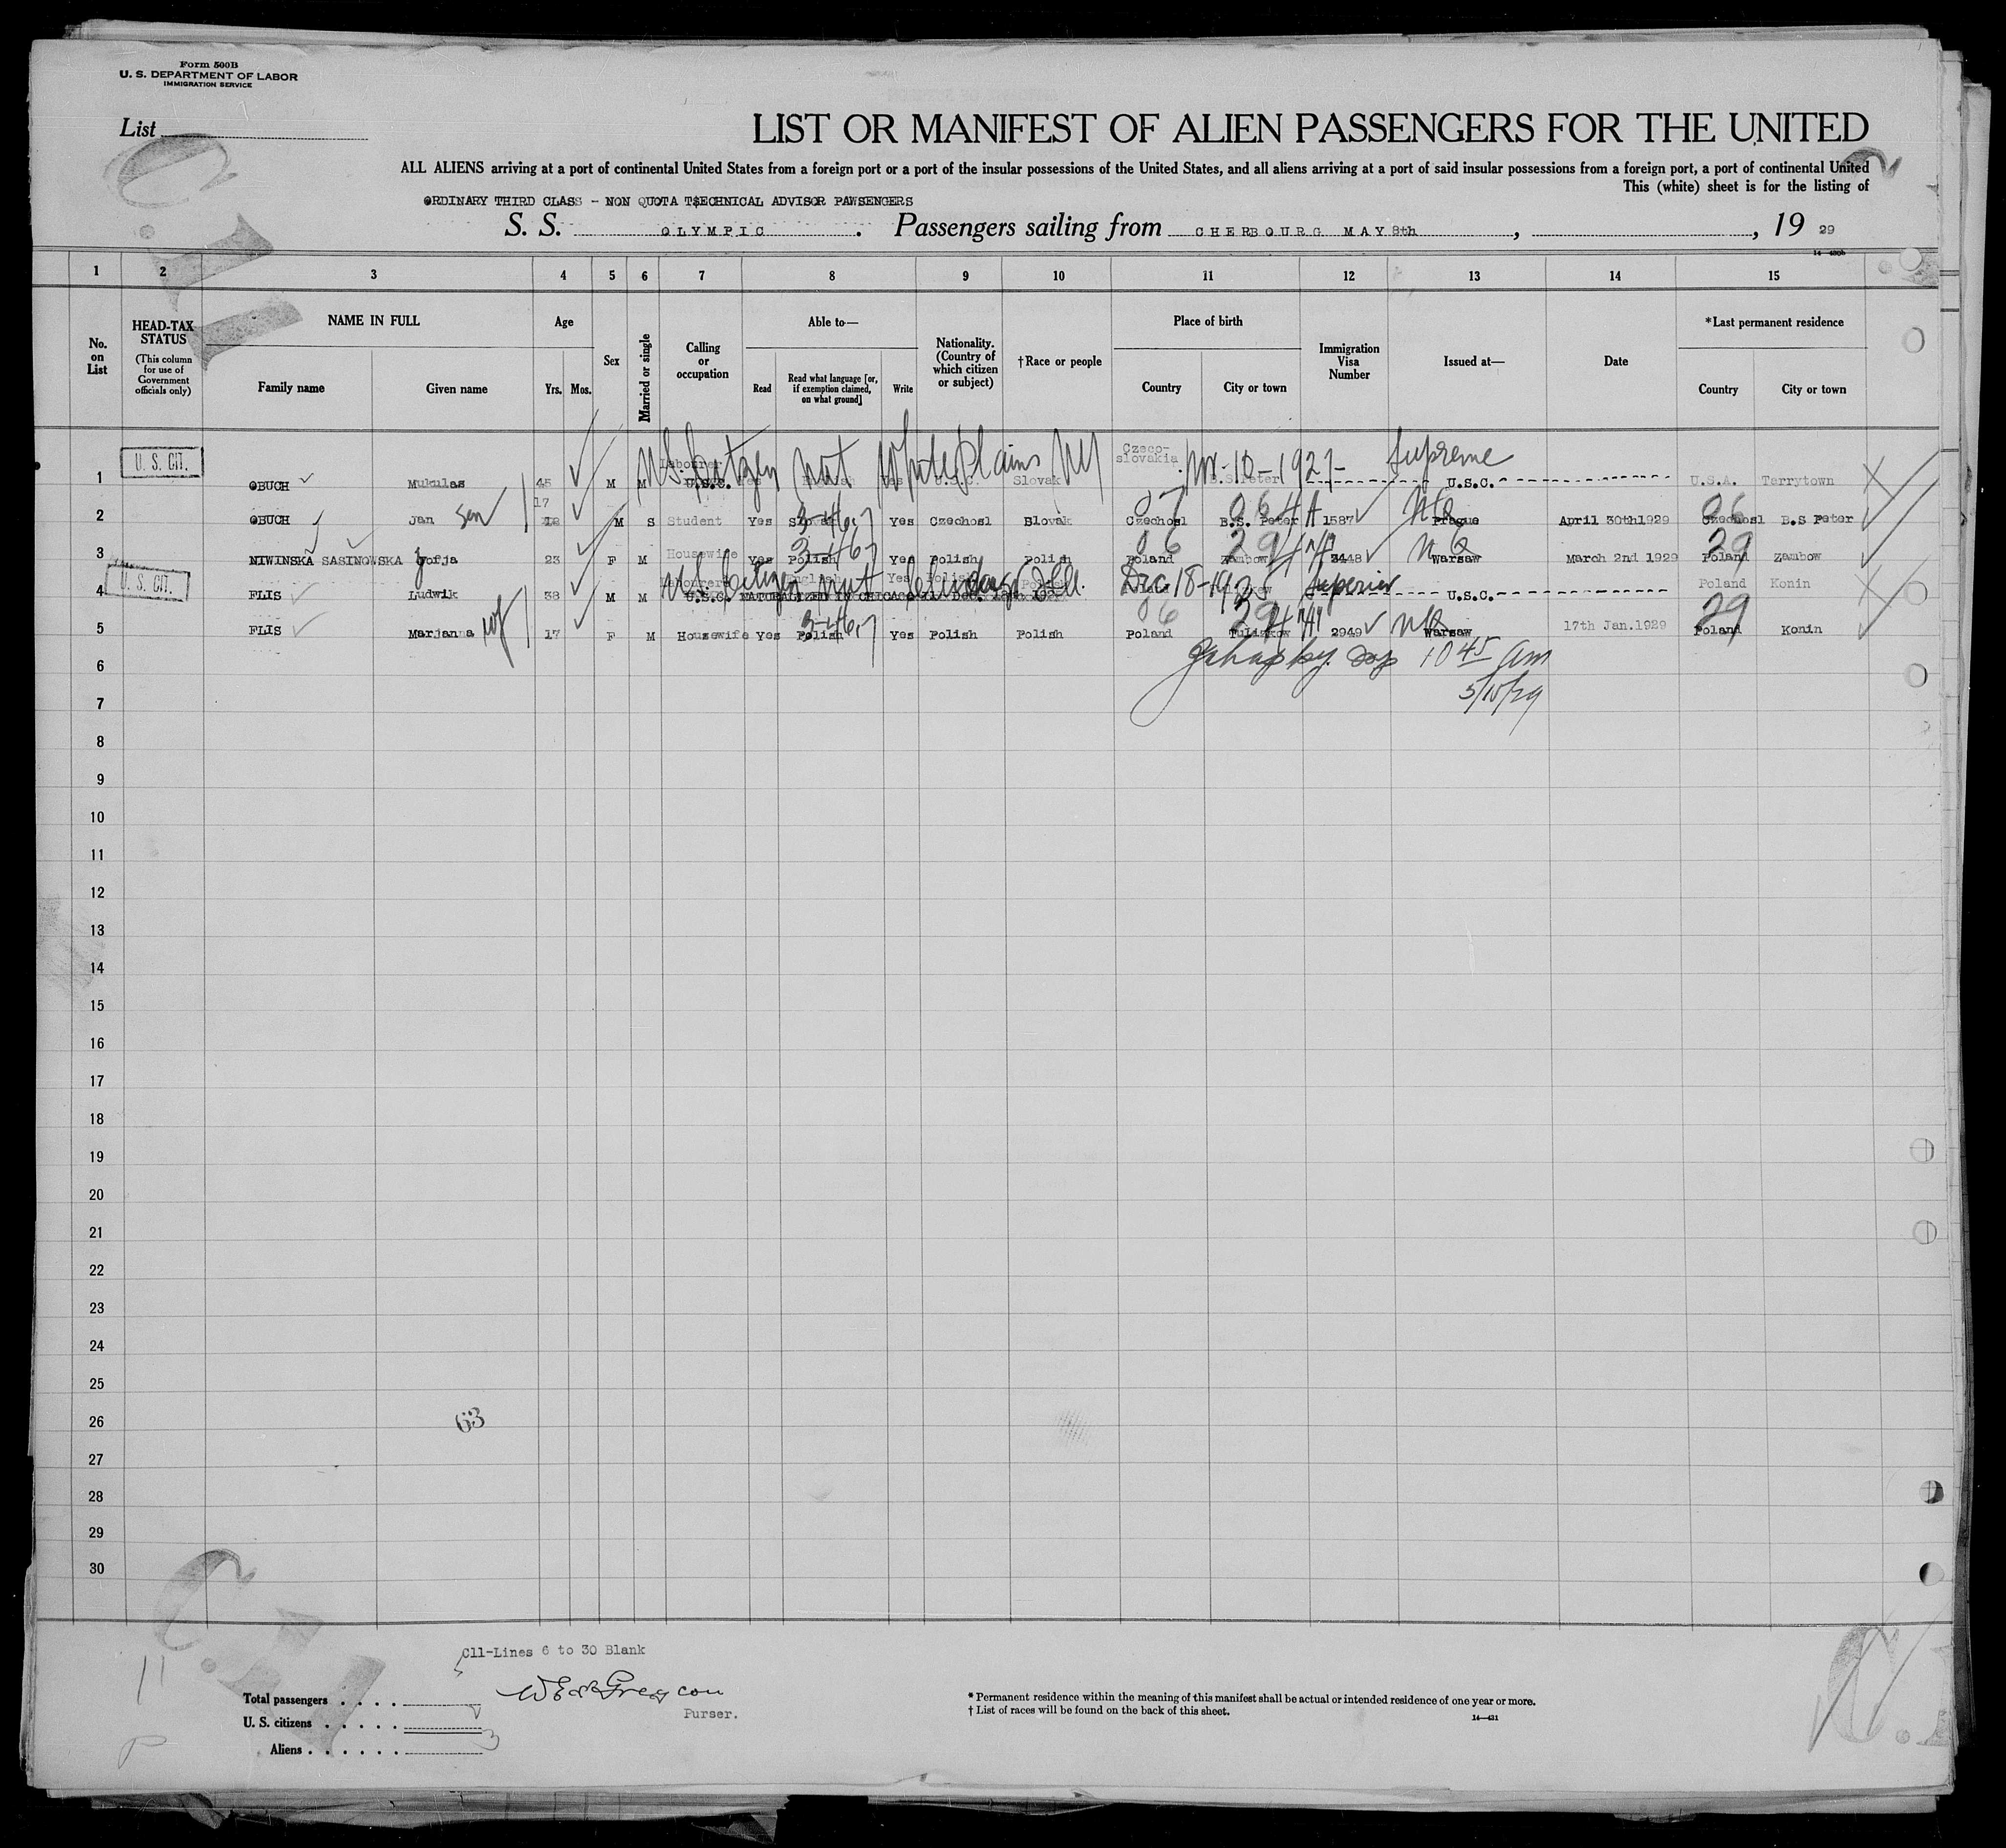 Form 500B
U. S. DEPARTMENT OF LABOR
IMMIGRATION SERVICE
List
LIST OR MANIFEST OF ALIEN PASSENGERS FOR THE UNITED
ALL ALIENS arriving at a port of continental United States from a foreign port or a port of the insular possessions of the United States, and all aliens arriving at a port of said insular possessions from a foreign port, a port of continental United
This (white) sheet is for the listing of
ORDINARY THIRD CLASS - NON QUOTA T$ECHNICAL ADVISOR PAWSENGERS
S. S. OLYMPIC. Passengers sailing from CHERBOURG MAY 8th, , 19 29
1 2 3 4 5 6 7 8 9 10 11 12 13 14 15
No. on List
HEAD-TAX STATUS (This column for use of Government officials only)
NAME IN FULL Family name Given name
Age Yrs. Mos.
Sex
Married or single
Calling or occupation
Able to— Read Read what language [or, if exemption claimed, on what ground] Write
Nationality. (Country of which citizen or subject)
†Race or people
Place of birth Country City or town
Immigration Visa Number
Issued at—
Date
*Last permanent residence Country City or town
U.S. Citizen nat White Plains NY 10-1927- Supreme
1 U. S. CIT. OBUCH Mukulas 45 M M Labourer U.S.C. Slovak Czeco-slovakia B.S.Peter U.S.C. U.S.A. Terrytown
2 OBUCH Jan son 17 M S Student Yes Slovak Yes Czechosl Slovak Czechosl B.S. Peter 1587 NQ Prague April 30th1929 Czechosl B.S Peter
3 NIWINSKA SASINOWSKA Zofja 23 F M Housewife Yes Polish Yes Polish Polish Poland Zambow 3448 NQ Warsaw March 2nd 1929 Poland Zambow
U.S. Citizen nat Chicago Ill. Dec 18-1925 Superior
4 U. S. CIT. FLIS Ludwik 38 M M Labourer U.S.C. NATURALIZED IN CHICAGO U.S.C. Poland Konin
5 FLIS Marjanna wf 17 F M Housewife Yes Polish Yes Polish Polish Poland Tuliszkow 2949 NQ Warsaw 17th Jan.1929 Poland Konin
10 45 am
5/15/29
6
7
8
9
10
11
12
13
14
15
16
17
18
19
20
21
22
23
24
25
26
63
27
28
29
30
Cll-Lines 6 to 30 Blank
Total passengers
Purser.
U. S. citizens 2
Aliens 3
* Permanent residence within the meaning of this manifest shall be actual or intended residence of one year or more.
† List of races will be found on the back of this sheet.
14—421